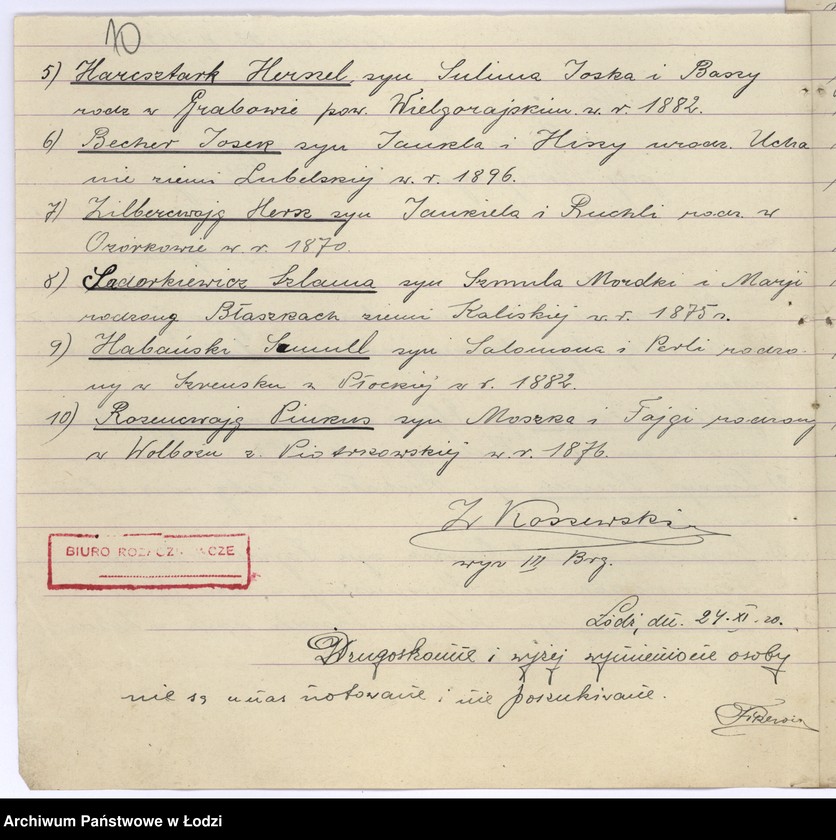 10
5) Harcsztark Herszel, syn Sulima Joska i Baszy
rodz w Grabowie pow. Wielgorajskim w. r. 1882.
6) Becher Josek syn Jankla i Hissy urodz. Ucha
nie ziemi Lubelskiej w. r. 1896.
7) Zilbercwajg Hersz syn Jankiela i Ruchli rodz. w
Ozorkowie w. r. 1870.
8) Sadorkiewicz Szlama syn Szmula Mordki i Marji
rodzony Błaszkach ziemi Kaliskiej w. r. 1875 r.
9) Habański Szmull syn Salomona i Perli rodzo-
ny w Szrensku z Płockiej w r. 1882.
10) Rozencwajg Pinkus syn Moszka i Fajgi rodzony
w Wolborzu z Piotrkowskiej w. r. 1876.
Koszewski
wyw III Brg.
BIURO ROZPOZNAWCZE
Łódź, dn. 24. XI. 20.
Drugoskornie i wyżej wymienione osoby
nie są u nas notowane i nie poszukiwane.
Archiwum Państwowe w Łodzi